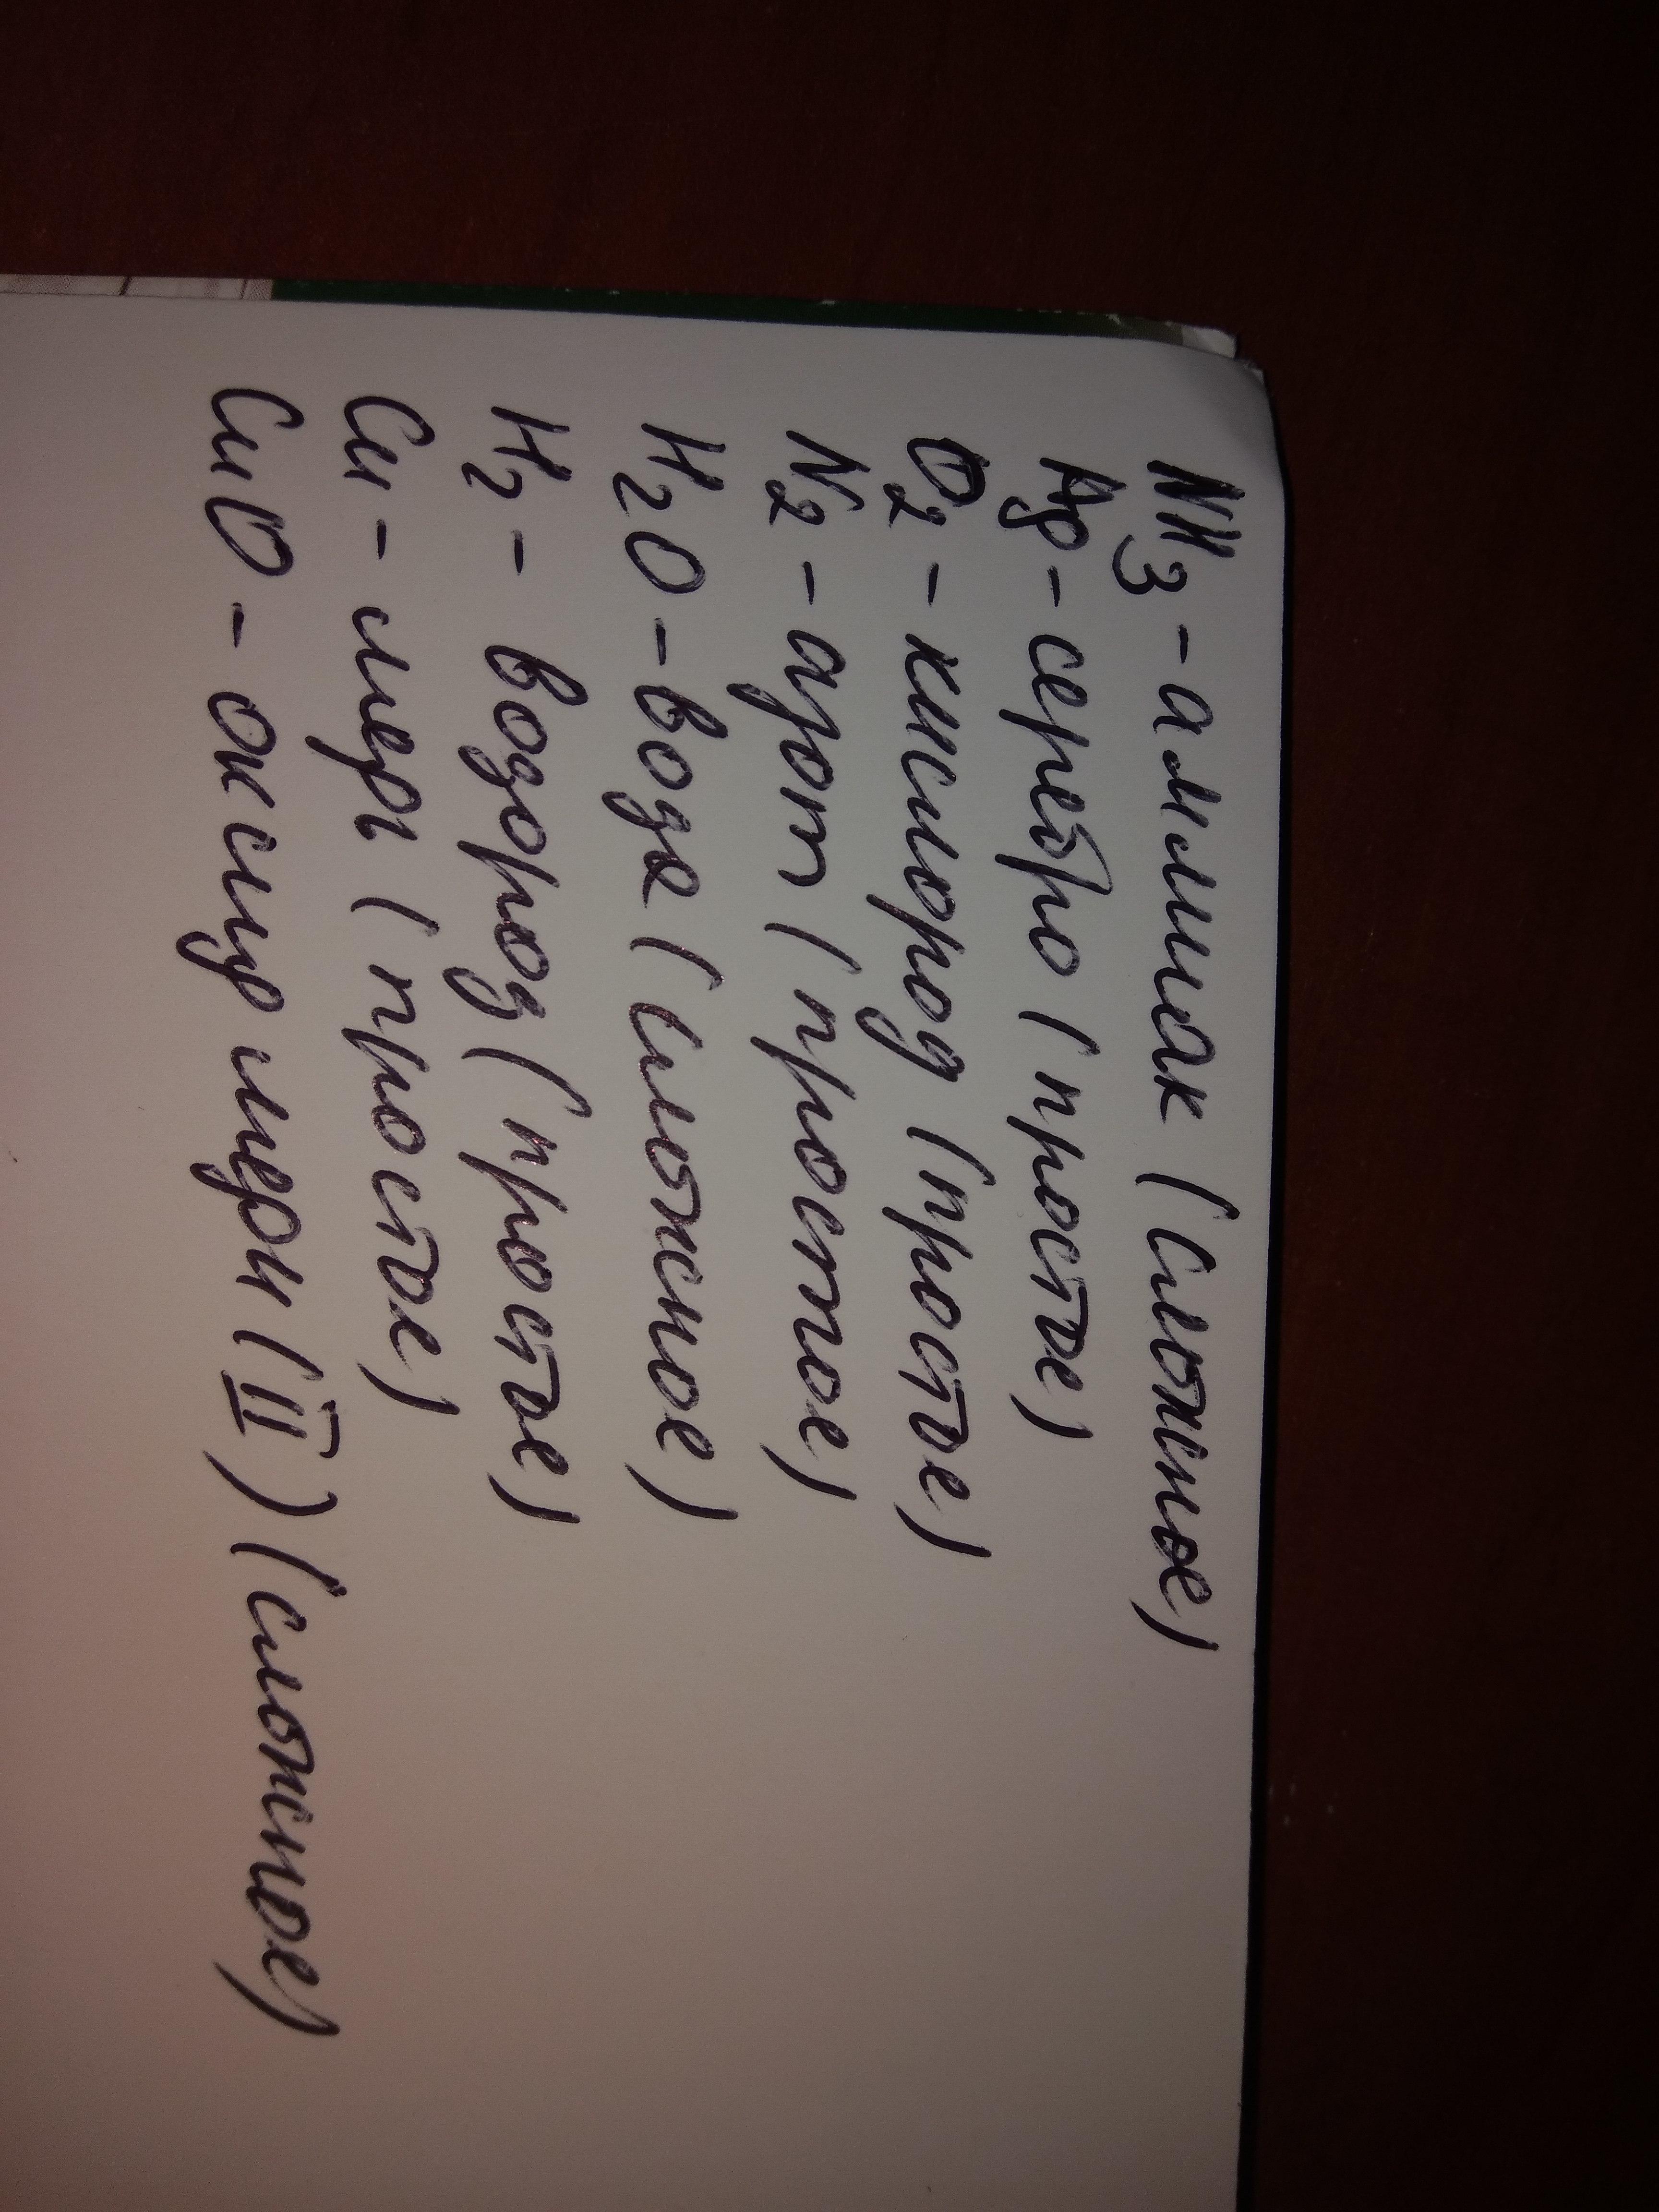 NH3 - аммиак (сложное)
Ag - серебро (простое)
O2 - кислород (простое)
N2 - азот (простое)
H2O - вода (сложное)
H2 - водород (простое)
Cu - медь (простое)
CuO - оксид меди (II) (сложное)